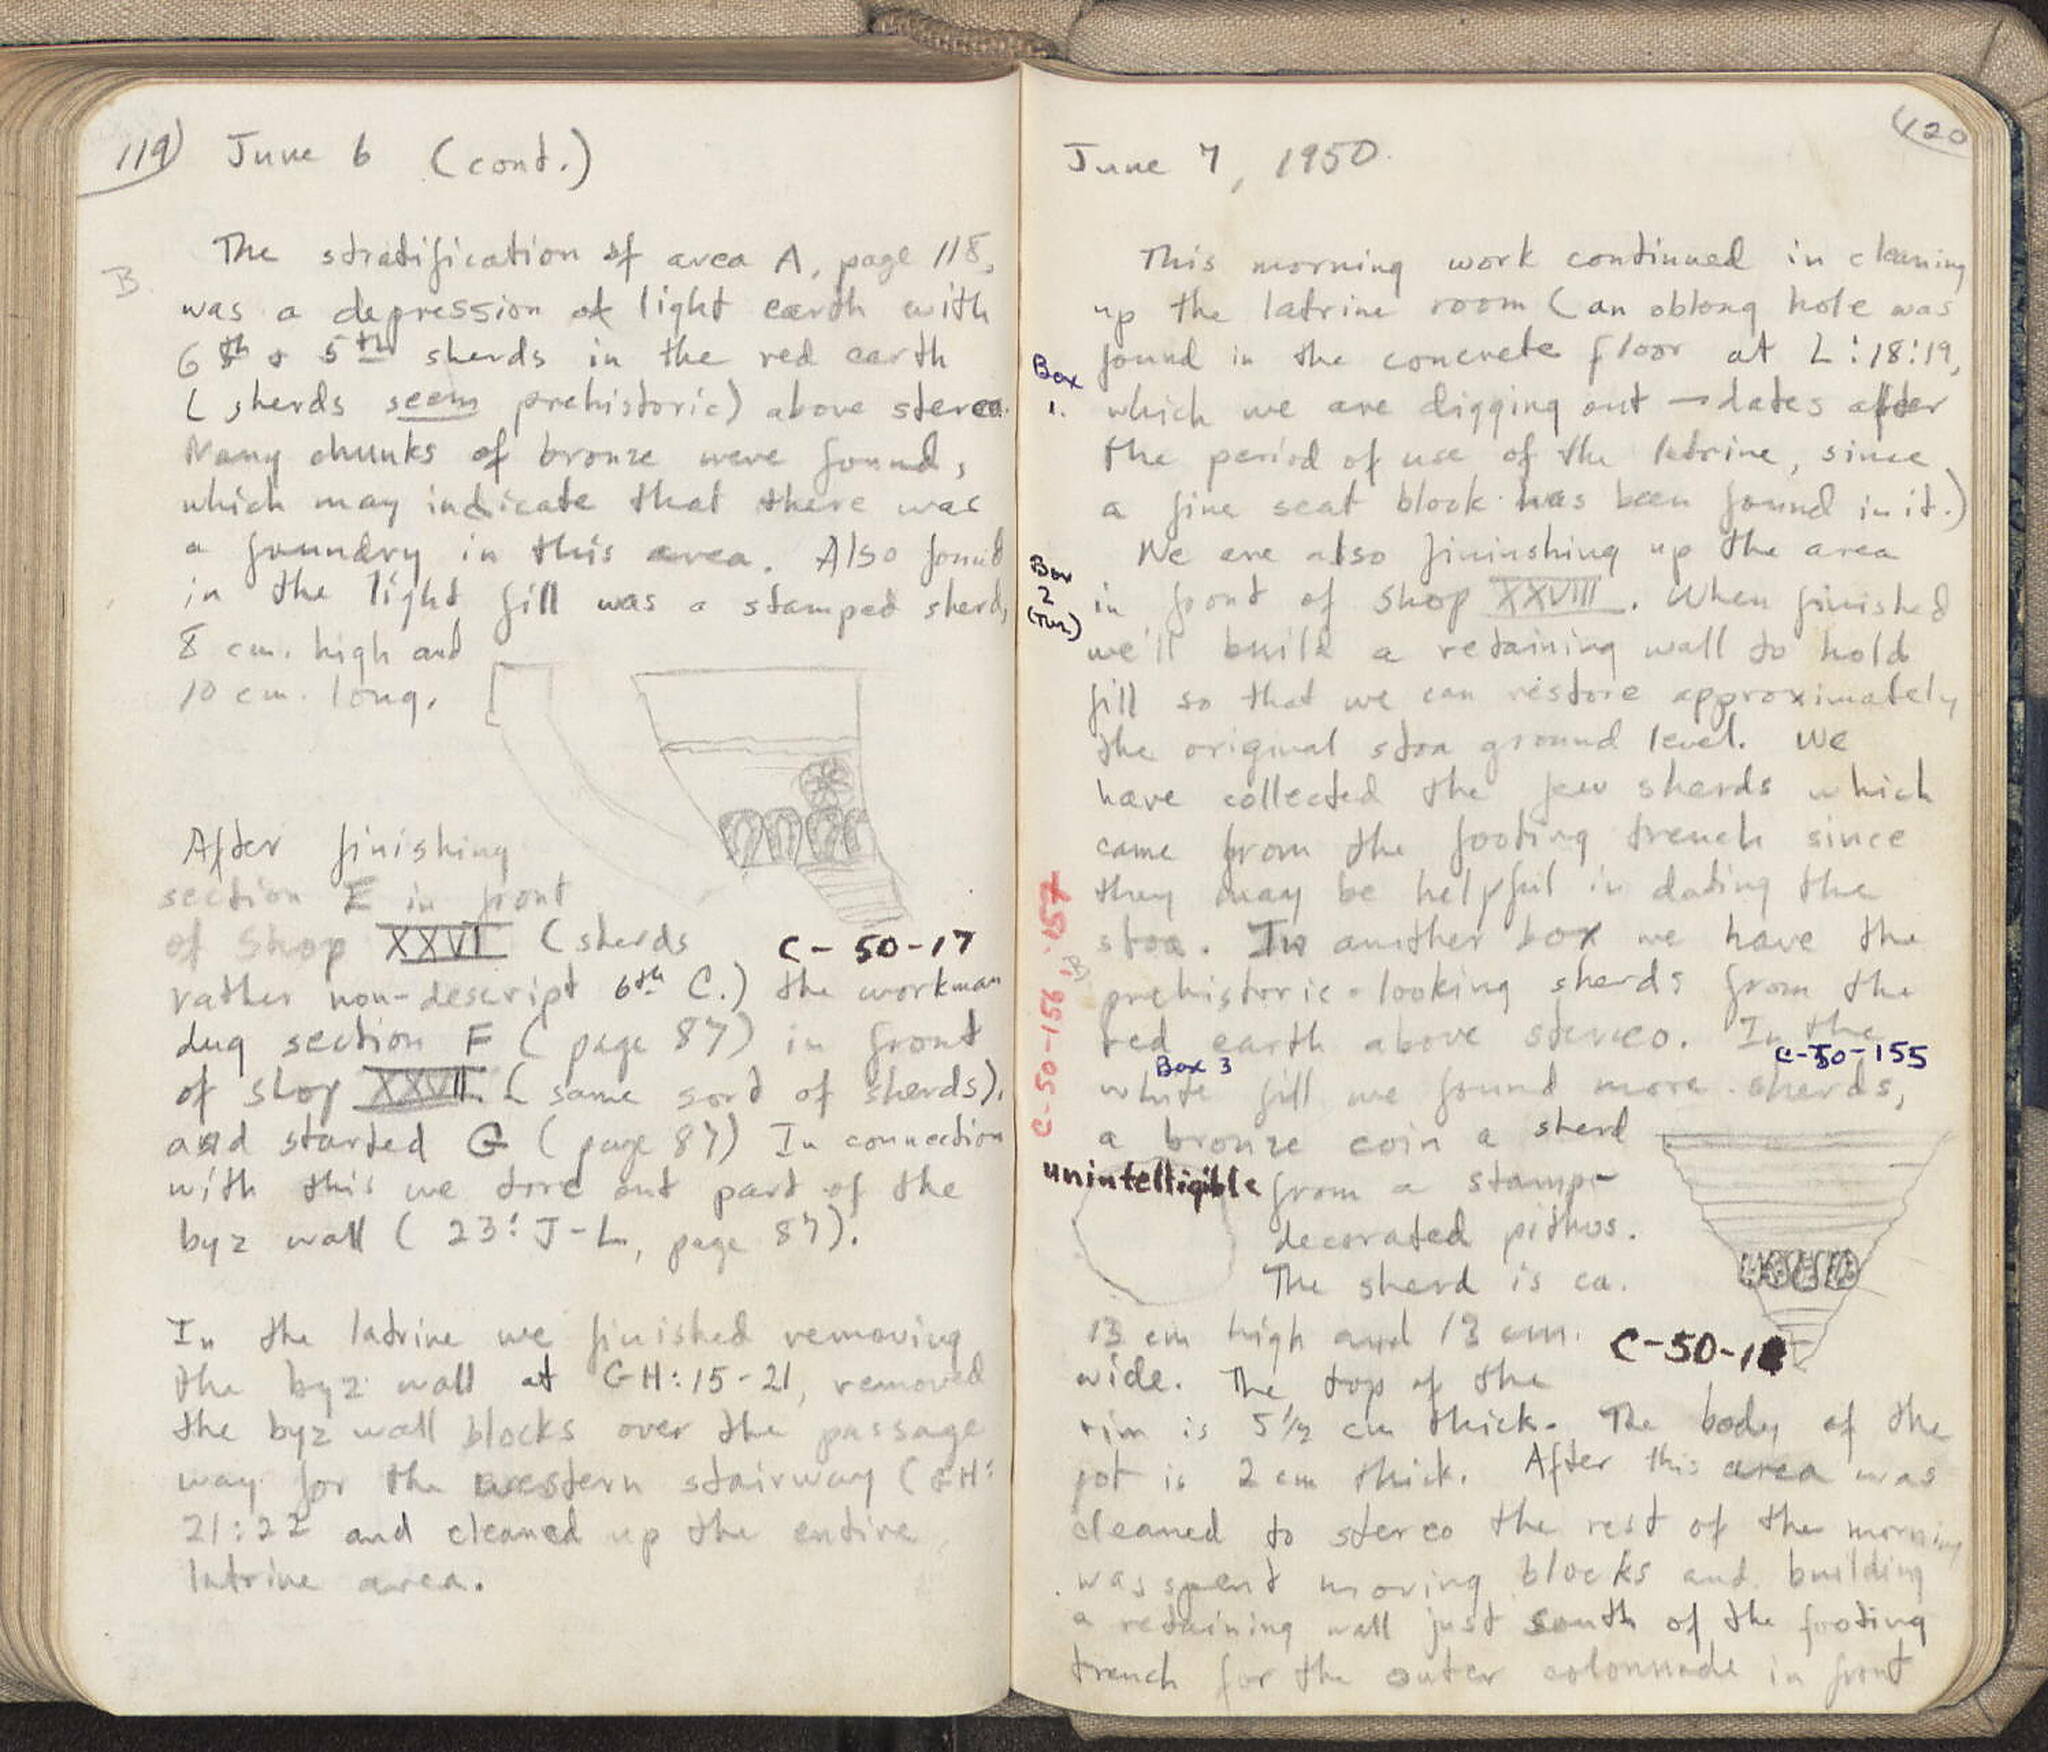 119) June 6 (cont.)
B
The stratification of area A, page 118,
was a depression of light earth with
6th & 5th sherds in the red earth
(sherds seem prehistoric) above stereo.
Many chunks of bronze were found,
which may indicate that there was
a foundry in this area. Also found
in the light fill was a stamped sherd,
8 cm. high and
10 cm. long.
After finishing
section E in front
of Shop XXVI (sherds
C-50-17
rather non-descript 6th C.) the workman
dug section F (page 87) in front
of shop XXVII (same sort of sherds),
and started G (page 87) In connection
with this we tore out part of the
byz wall (23:J-L, page 87).
In the latrine we finished removing
the byz wall at GH:15-21, removed
the byz wall blocks over the passage
way for the western stairway (GH:
21:22 and cleaned up the entire
latrine area.
(120
June 7, 1950.
This morning work continued in cleaning
up the latrine room (an oblong hole was
found in the concrete floor at L:18:19,
Box
1.
which we are digging out → dates after
the period of use of the latrine, since
a fine seat block has been found in it.)
We are also fininshing up the area
Box
2
in front of Shop XXVIII. When finished
we'll build a retaining wall to hold
fill so that we can restore approximately
the original stoa ground level. We
have collected the few sherds which
came from the footing trench since
they may be helpful in dating the
stoa. In another box we have the
B
prehistoric-looking sherds from the
red earth above stereo. In the
Box 3
C-50-155
white fill we found more sherds,
C-50-156, -157
a bronze coin a sherd
unintelligible
from a stamp-
decorated pithos.
The sherd is ca.
13 cm high and 13 cm.
C-50-18
wide. The top of the
rim is 5 1/2 cm thick. The body of the
pot is 2 cm thick. After this area was
cleaned to stereo the rest of the morning
was spent moving blocks and building
a retaining wall just south of the footing
trench for the outer colonnade in front